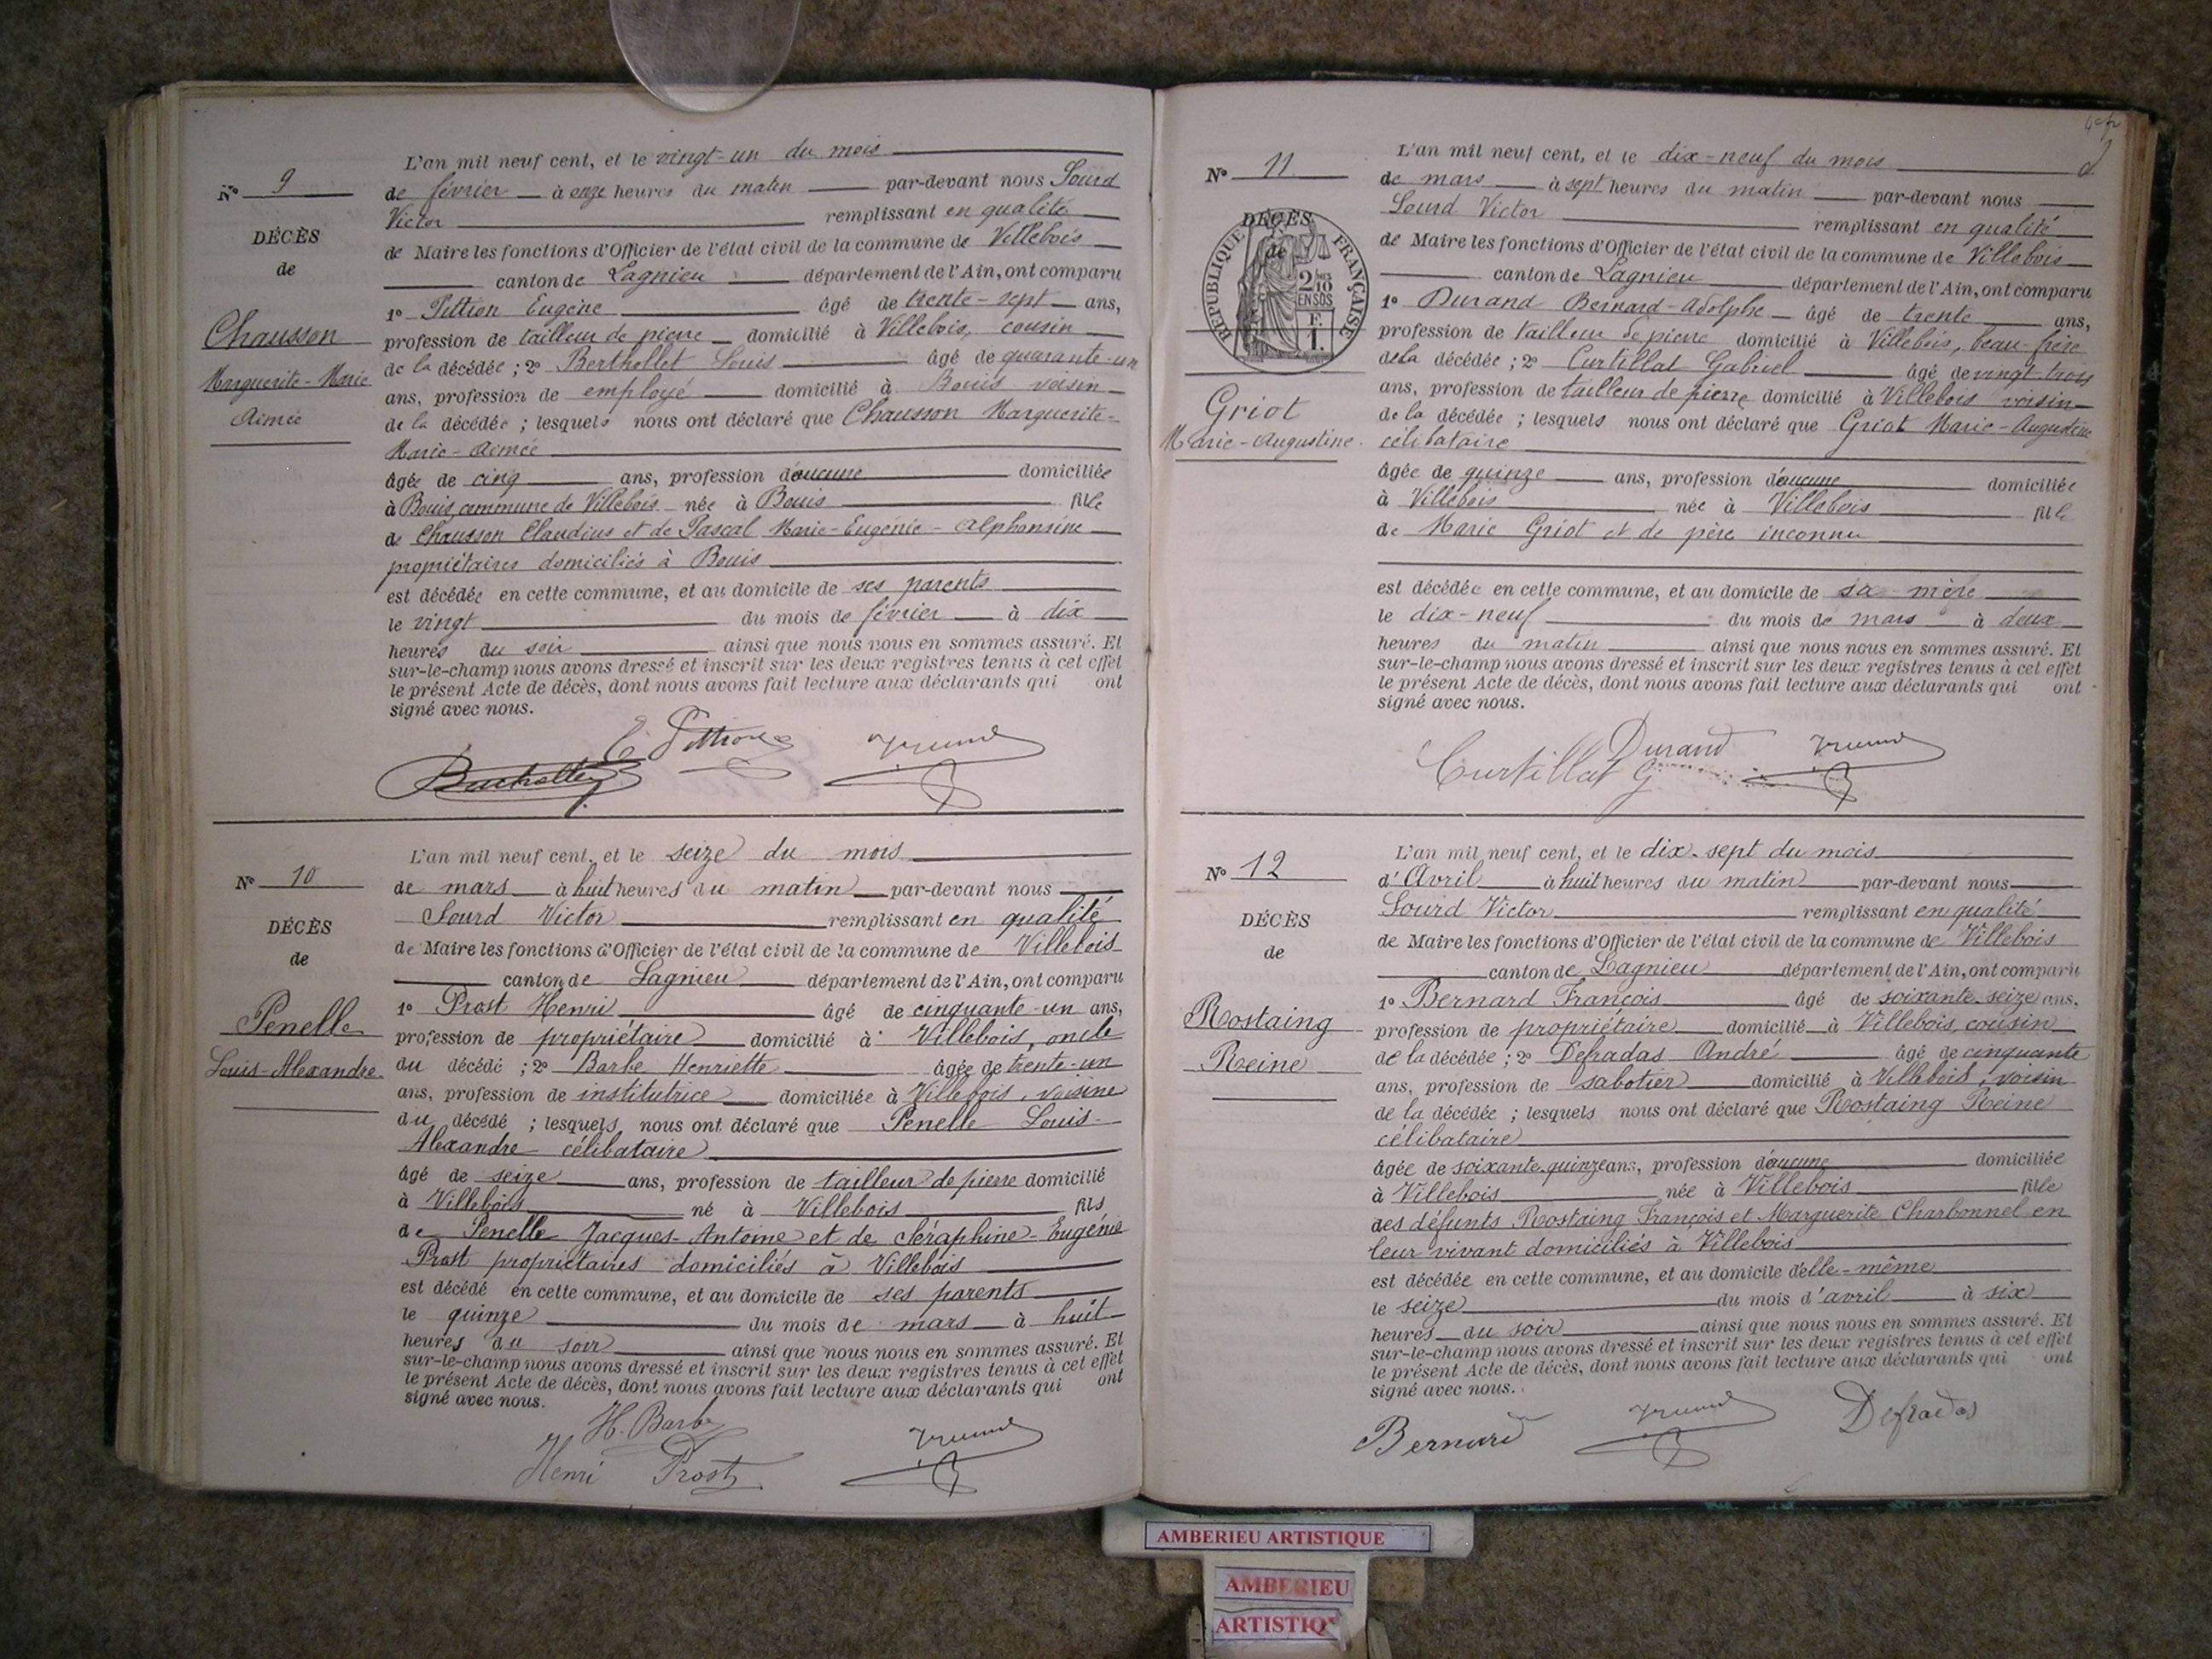 N° 9
DÉCÈS
de
Chausson
Marguerite-Marie
Aimée
L'an mil neuf cent, et le vingt-un du mois
de février à onze heures du matin par-devant nous Sourd
Victor remplissant en qualité
de Maire les fonctions d'Officier de l'état civil de la commune de Villebois
canton de Lagnieu département de l'Ain, ont comparu
1° Pittion Eugène âgé de trente-sept ans,
profession de tailleur de pierre domicilié à Villebois, cousin
de la décédée ; 2° Berthollet Louis âgé de quarante-un
ans, profession de employé domicilié à Bouis voisin
de la décédée ; lesquels nous ont déclaré que Chausson Marguerite-
Marie-Aimée
âgée de cinq ans, profession d'aucune domiciliée
à Bouis commune de Villebois née à Bouis fille
de Chausson Claudius et de Pascal Marie-Eugénie-Alphonsine
propriétaires domiciliés à Bouis
est décédée en cette commune, et au domicile de ses parents
le vingt du mois de février à dix
heures du soir ainsi que nous nous en sommes assuré. Et
sur-le-champ nous avons dressé et inscrit sur les deux registres tenus à cet effet
le présent Acte de décès, dont nous avons fait lecture aux déclarants qui ont
signé avec nous.
E. Pittion
N° 10
DÉCÈS
de
Penelle
Louis-Alexandre
L'an mil neuf cent, et le seize du mois
de mars à huit heures du matin par-devant nous
Sourd Victor remplissant en qualité
de Maire les fonctions d'Officier de l'état civil de la commune de Villebois
canton de Lagnieu département de l'Ain, ont comparu
1° Prost Henri âgé de cinquante-un ans,
profession de propriétaire domicilié à Villebois, oncle
du décédé ; 2° Barbe Henriette âgée de trente-un
ans, profession de institutrice domiciliée à Villebois, voisine
du décédé ; lesquels nous ont déclaré que Penelle Louis-
Alexandre célibataire
âgé de seize ans, profession de tailleur de pierre domicilié
à Villebois né à Villebois fils
de Penelle Jacques-Antoine et de Séraphine-Eugénie
Prost propriétaires domiciliés à Villebois
est décédé en cette commune, et au domicile de ses parents
le quinze du mois de mars à huit
heures du soir ainsi que nous nous en sommes assuré. Et
sur-le-champ nous avons dressé et inscrit sur les deux registres tenus à cet effet
le présent Acte de décès, dont nous avons fait lecture aux déclarants qui ont
signé avec nous.
H. Barbe
Henri Prost
N° 11
DÉCÈS
de
RÉPUBLIQUE FRANÇAISE
2/10
EN SUS
F.
1.
Griot
Marie-Augustine
L'an mil neuf cent, et le dix-neuf du mois
de mars à sept heures du matin par-devant nous
Sourd Victor remplissant en qualité
de Maire les fonctions d'Officier de l'état civil de la commune de Villebois
canton de Lagnieu département de l'Ain, ont comparu
1° Durand Bernard-Adolphe âgé de trente ans,
profession de tailleur de pierre domicilié à Villebois, beau-frère
de la décédée ; 2° Curtillat Gabriel âgé de vingt-trois
ans, profession de tailleur de pierre domicilié à Villebois voisin
de la décédée ; lesquels nous ont déclaré que Griot Marie-Augustine
célibataire
âgée de quinze ans, profession d'aucune domiciliée
à Villebois née à Villebois fille
de Marie Griot et de père inconnu
est décédée en cette commune, et au domicile de sa mère
le dix-neuf du mois de mars à deux
heures du matin ainsi que nous nous en sommes assuré. Et
sur-le-champ nous avons dressé et inscrit sur les deux registres tenus à cet effet
le présent Acte de décès, dont nous avons fait lecture aux déclarants qui ont
signé avec nous.
Durand
Curtillat G
N° 12
DÉCÈS
de
Rostaing
Reine
L'an mil neuf cent, et le dix-sept du mois
d'Avril à huit heures du matin par-devant nous
Sourd Victor remplissant en qualité
de Maire les fonctions d'Officier de l'état civil de la commune de Villebois
canton de Lagnieu département de l'Ain, ont comparu
1° Bernard François âgé de soixante-seize ans,
profession de propriétaire domicilié à Villebois, cousin
de la décédée ; 2° Defradas André âgé de cinquante
ans, profession de sabotier domicilié à Villebois, voisin
de la décédée ; lesquels nous ont déclaré que Rostaing Reine
célibataire
âgée de soixante-quinze ans, profession d'aucune domiciliée
à Villebois née à Villebois fille
des défunts Rostaing François et Marguerite Charbonnel en
leur vivant domiciliés à Villebois
est décédée en cette commune, et au domicile d'elle-même
le seize du mois d'avril à six
heures du soir ainsi que nous nous en sommes assuré. Et
sur-le-champ nous avons dressé et inscrit sur les deux registres tenus à cet effet
le présent Acte de décès, dont nous avons fait lecture aux déclarants qui ont
signé avec nous.
Bernard Defradas
AMBERIEU ARTISTIQUE
AMBERIEU
ARTISTIQ